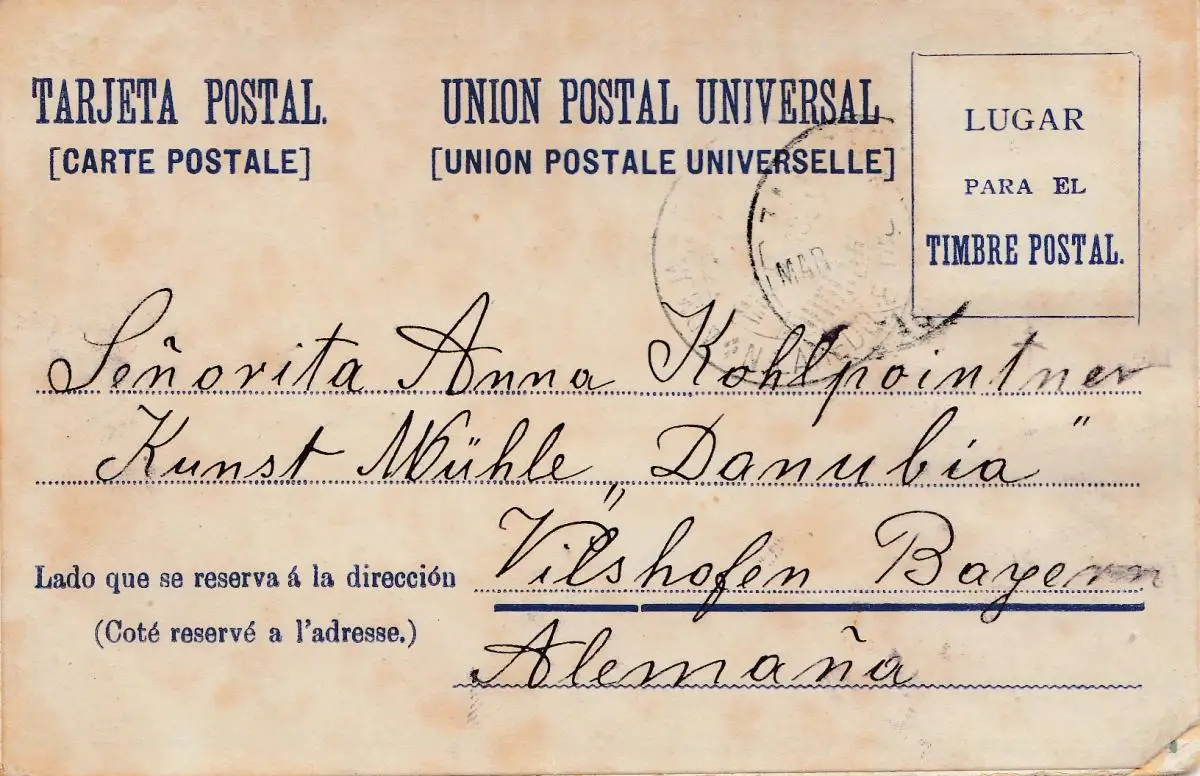 TARJETA POSTAL. UNION POSTAL UNIVERSAL
[CARTE POSTALE] [UNION POSTALE UNIVERSELLE]
LUGAR
PARA EL
TIMBRE POSTAL.
MAR
Señorita Anna Kohlpointner
Kunst Mühle „Danubia"
Vilshofen Bayern
Lado que se reserva á la dirección
(Coté reservé a l'adresse.)
Alemaña